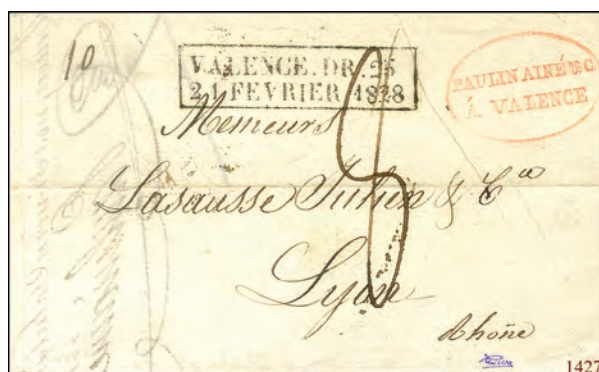 10
VALENCE.DR.25
21 FEVRIER 1828
PAULIN AINÉ & C.
À VALENCE
Messieurs
Lasausse Julien & Cie
Lyon
Rhône
1427